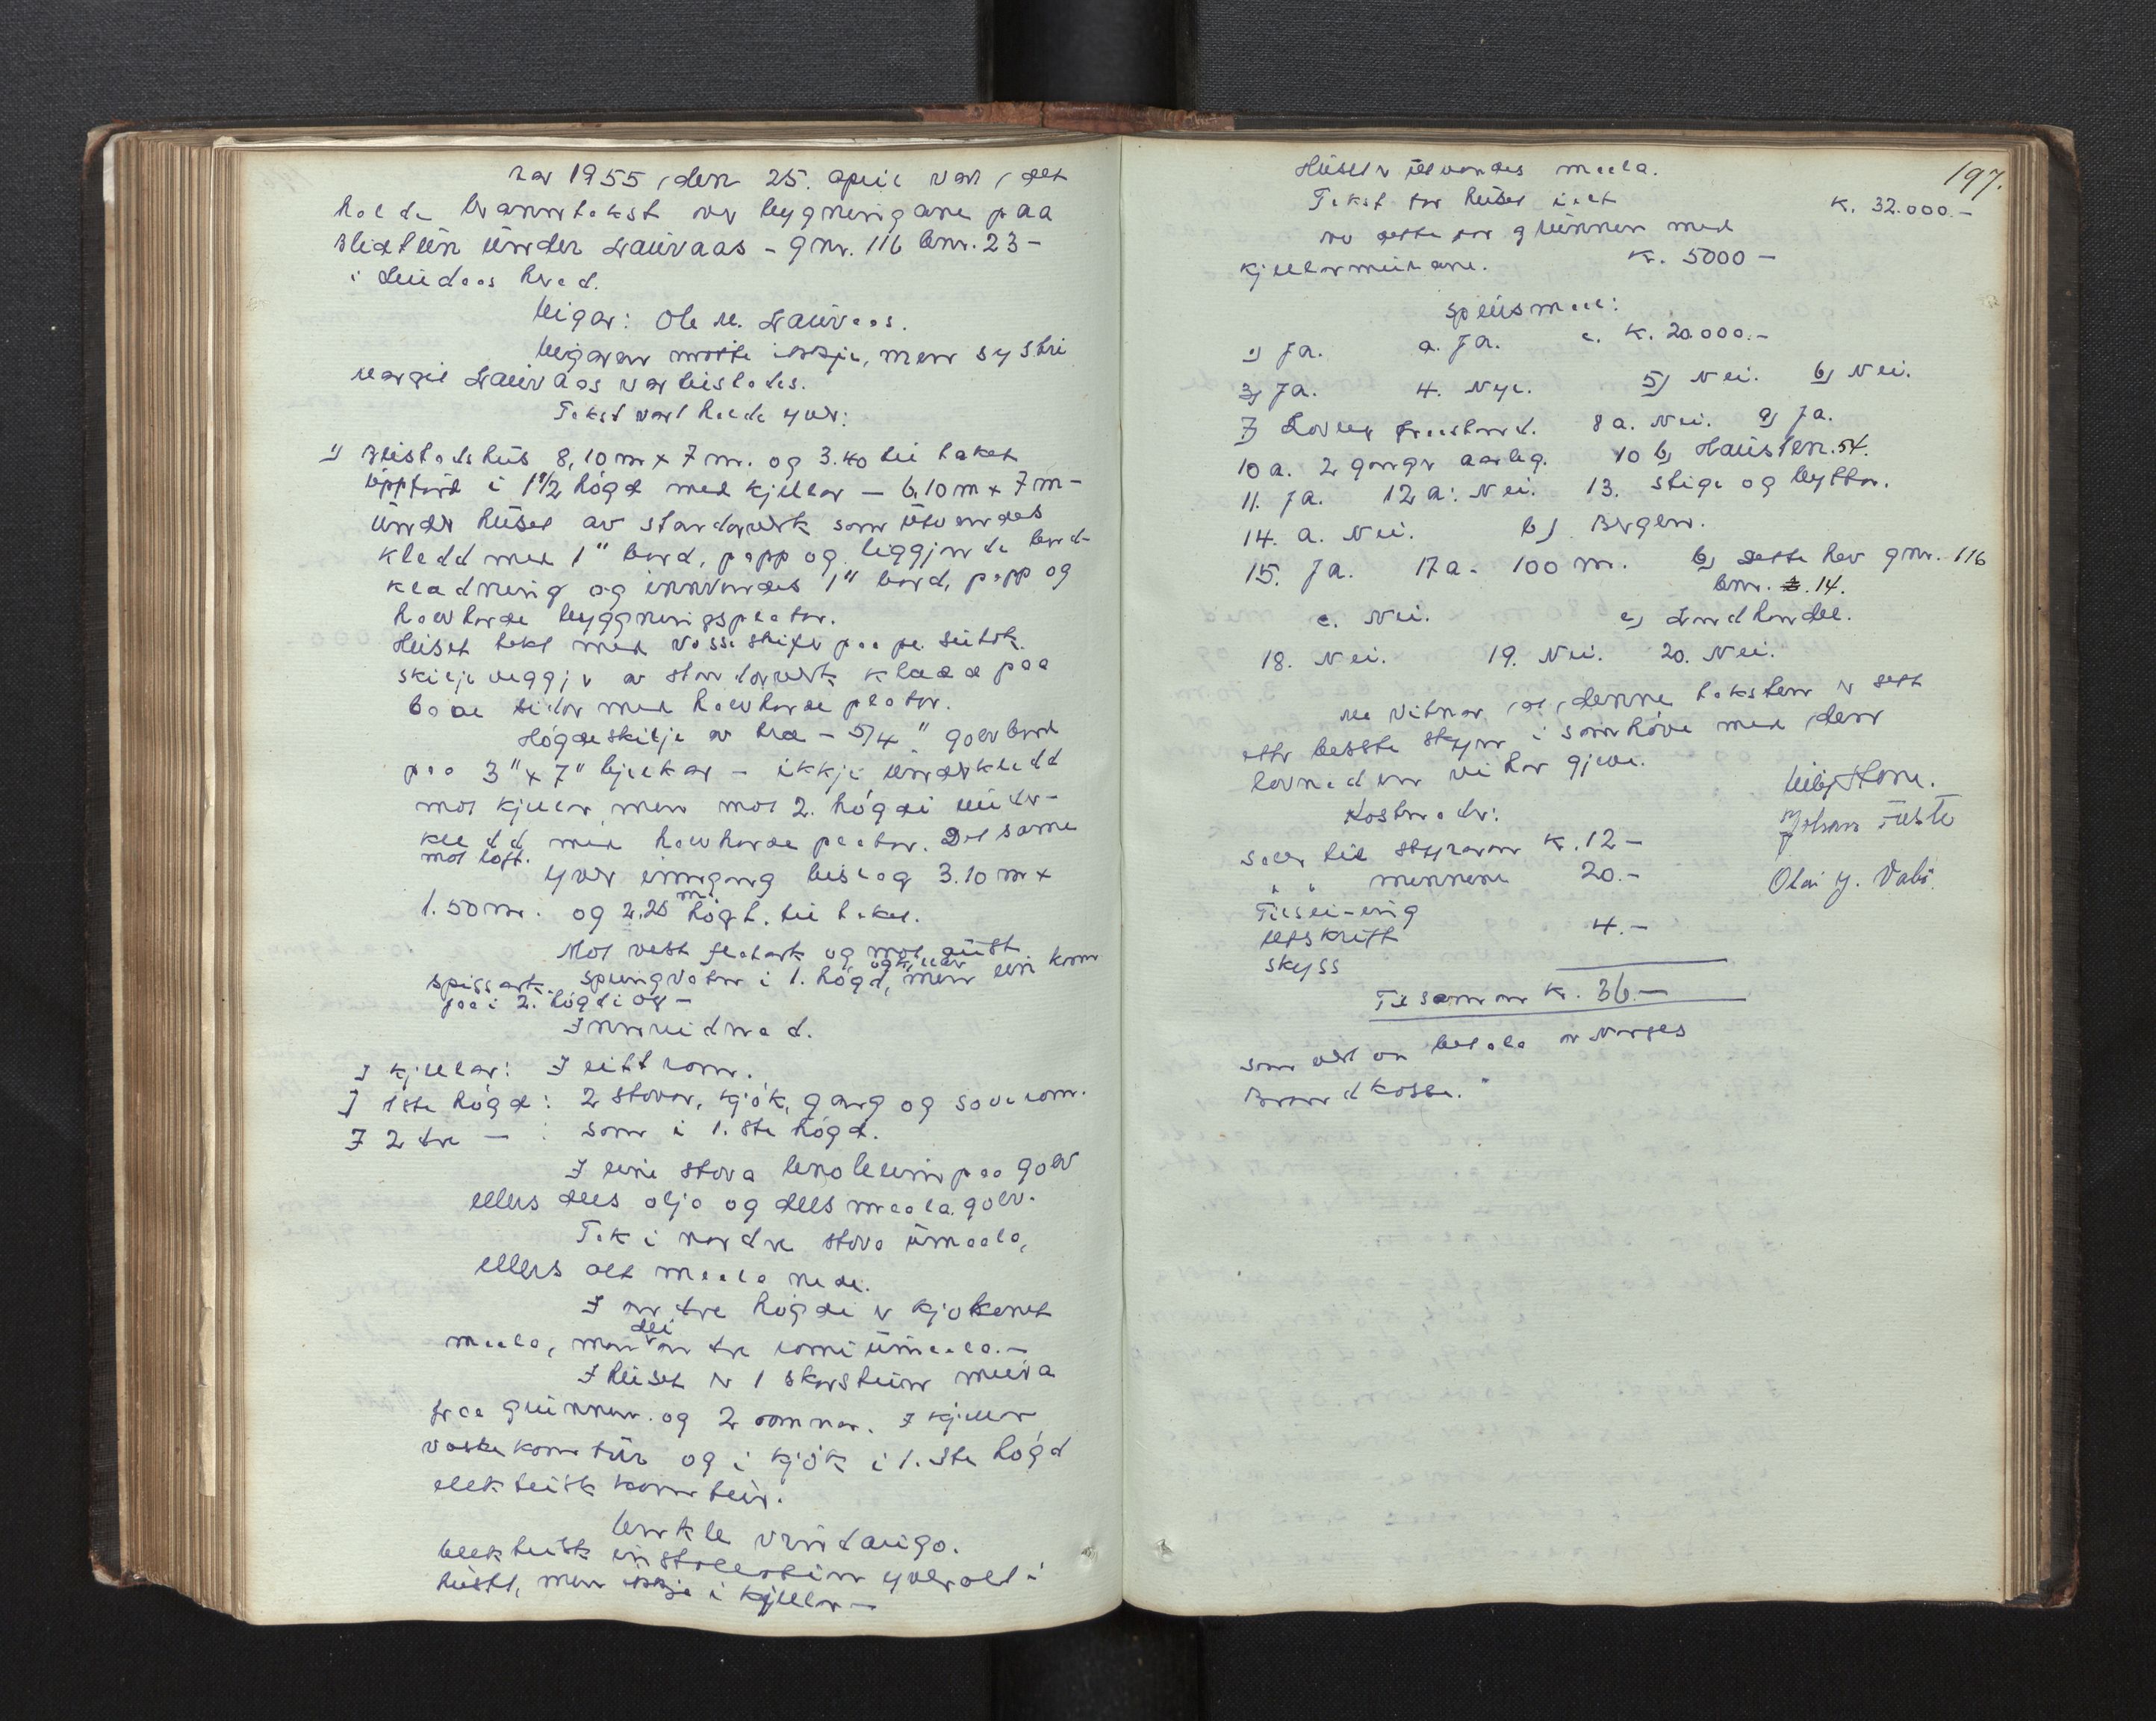 Aar 1955, den 25. april vart det
halde branntakst yver bygningane paa
under Lauvaas - gnr. 116 bnr. 23 -
i Lindaas herad.
Eigar: Ole M. Lauvaas.
Eigaren møtte ikkje, men systri
Margit Lauvaas var tilstades.
Takst vart halde yver:
1) Bustadshus 8,10 m x 7 m. og 3.40 til taket
uppförd i 1 1/2 högd med kjellar - 6.10 m x 7 m -
under huset av standarverk som utvendes
kledd med 1" bord, papp og liggjande bord-
kladning og innvendes 1" bord, papp og
halvharde byggningsplator.
Huset tekt med Vosseskifer paa pl. sutak.
Skiljeveggjer av standarverk kledd paa
baae sidor med halvharde plator.
Högdeskilje av tre - 5/4" golvbord
paa 3" x 7" bjelkar - ikkje underkledd
mot kjellar, men mot 2. högdi under-
kledd med halvharde plator. Det same
mot loft.
Yver inngang bislag 3.10 m x
1.50 m. og 2.25 m högt. til taket.
Mot vest flatark og mot aust
spissark. Springvatn i 1. högd, og kjellar men ein kran
paa i 2. högdi og -
Innreidnad.
I kjellar: I eitt rom.
I 1ste högd: 2 stovor, kjök, gang og soverom.
I 2dre - : som i 1.ste högd.
I eine stova linoleum paa golv
ellers dels olja og dels maala golv.
Tak i nordre stova umaala,
ellers alt maala nede.
I andre högdi er kjökenet
maala, men dei andre romi umaala. -
I huset er 1 skorstein mura
fraa grunnen. og 2 omnar. I kjellar
vaskekomfur og i kjök i 1.ste högd
elektrisk komfur.
Enkle vindaugo.
Elektrisk installation yveralt i
huset, men ikkje i kjellar -
197.
Huset er utvendes maala.
Takst for huset i alt K. 32.000.-
av dette for grunnen med
kjellarmurane. Kr. 5000 -
Spursmaal:
1) Ja. a. Ja. c. K. 20.000.-
3) Ja. 4. Nye. 5) Nei. 6) Nei.
7) Lovleg fraastand. 8a. Nei. 9) Ja.
10 a. 2 gonger aarleg. 10 b) Hausten. 54.
11. Ja. 12 a: Nei. 13. Stige og byttor.
14. a. Nei. b) Bergen.
15. Ja. 17 a. 100 m. b) Dette hev gnr. 116
bnr. 14.
c. Nei. e) Landhandel.
18. Nei. 19. Nei. 20. Nei.
Me vitnar at denne taksten er sett
etter beste skyn i samhöve med den
lovnad me har gjeve.
Johan
Olai J.
Kostnader:
Saler til styraren K. 12 -
" " mennene 20.-
Tilseiing
Utskrift 4.-
Skyss
Tilsaman Kr. 36.-
som vert aa betala av Norges
Brandkasse."